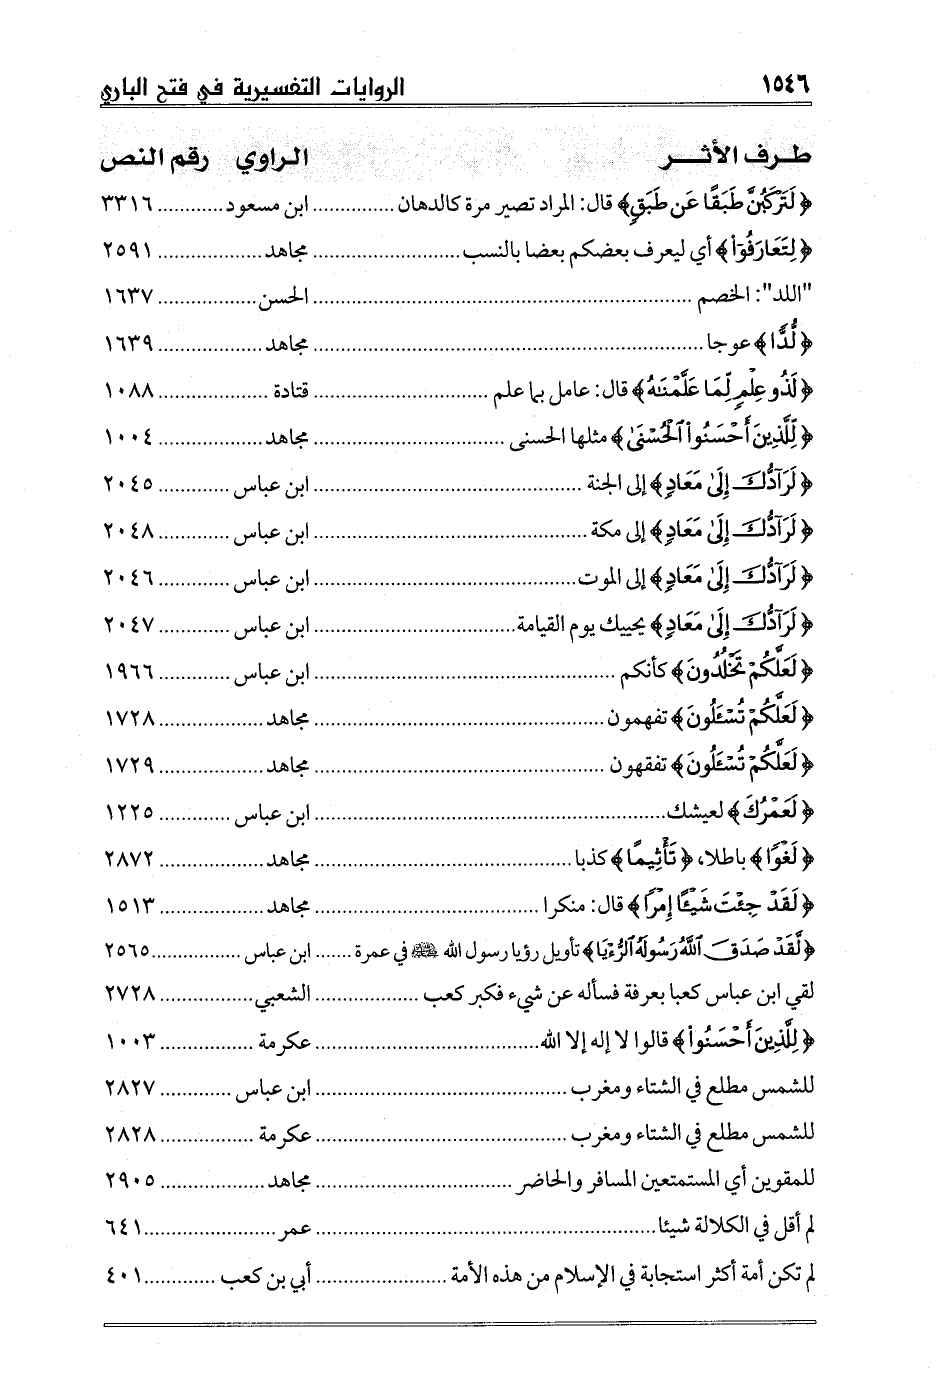 ١٥٤٦ الروايات التفسيرية في فتح الباري
طرف الأثر الراوي رقم النص
﴿لَتَرْكَبُنَّ طَبَقًا عَن طَبَقٍ﴾ قال: المراد تصير مرة كالدهان .............. ابن مسعود ............ ٣٣١٦
﴿لِتَعَارَفُوٓا۟﴾ أي ليعرف بعضكم بعضا بالنسب .......................... مجاهد .................. ٢٥٩١
"اللد": الخصم ................................................................. الحسن ................. ١٦٣٧
﴿لُّدًّا﴾ عوجا .................................................................... مجاهد .................. ١٦٣٩
﴿لَذُو عِلْمٍ لِّمَا عَلَّمْنَٰهُ﴾ قال: عامل بما علم ................................. قتادة ................... ١٠٨٨
﴿لِّلَّذِينَ أَحْسَنُوا۟ ٱلْحُسْنَىٰ﴾ مثلها الحسنى ................................. مجاهد .................. ١٠٠٤
﴿لَرَآدُّكَ إِلَىٰ مَعَادٍ﴾ إلى الجنة .............................................. ابن عباس ............ ٢٠٤٥
﴿لَرَآدُّكَ إِلَىٰ مَعَادٍ﴾ إلى مكة ............................................... ابن عباس ............ ٢٠٤٨
﴿لَرَآدُّكَ إِلَىٰ مَعَادٍ﴾ إلى الموت ............................................. ابن عباس ............ ٢٠٤٦
﴿لَرَآدُّكَ إِلَىٰ مَعَادٍ﴾ يحييك يوم القيامة ................................... ابن عباس ............ ٢٠٤٧
﴿لَعَلَّكُمْ تَخْلُدُونَ﴾ كأنكم .................................................... ابن عباس ............ ١٩٦٦
﴿لَعَلَّكُمْ تُسْـَٔلُونَ﴾ تفهمون .................................................. مجاهد .................. ١٧٢٨
﴿لَعَلَّكُمْ تُسْـَٔلُونَ﴾ تفقهون .................................................. مجاهد .................. ١٧٢٩
﴿لَعَمْرُكَ﴾ لعيشك ............................................................ ابن عباس ............ ١٢٢٥
﴿لَغْوًا﴾ باطلا، ﴿تَأْثِيمًا﴾ كذبا ............................................. مجاهد .................. ٢٨٧٢
﴿لَقَدْ جِئْتَ شَيْـًٔا إِمْرًا﴾ قال: منكرا ....................................... مجاهد .................. ١٥١٣
﴿لَّقَدْ صَدَقَ ٱللَّهُ رَسُولَهُ ٱلرُّءْيَا﴾ تأويل رؤيا رسول الله ﷺ في عمرة ....... ابن عباس ............... ٢٥٦٥
لقي ابن عباس كعبا بعرفة فسأله عن شيء فكبر كعب .................. الشعبي ................ ٢٧٢٨
﴿لِلَّذِينَ أَحْسَنُوا۟﴾ قالوا لا إله إلا الله ....................................... عكرمة ................ ١٠٠٣
للشمس مطلع في الشتاء ومغرب ........................................... ابن عباس ............ ٢٨٢٧
للشمس مطلع في الشتاء ومغرب ........................................... عكرمة ................ ٢٨٢٨
للمقوين أي المستمتعين المسافر والحاضر .................................. مجاهد .................. ٢٩٠٥
لم أقل في الكلالة شيئا .......................................................... عمر ....................... ٦٤١
لم تكن أمة أكثر استجابة في الإسلام من هذه الأمة ...................... أبي بن كعب ............ ٤٠١